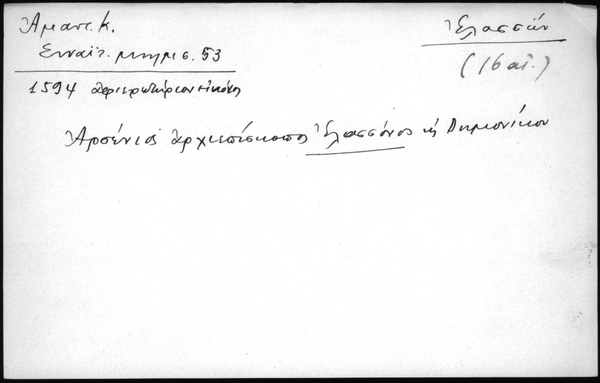 Ἄμαντ. Κ.
Σιναϊτ. μνημεῖα. 53
Ἐλασσών
(16 αἰ.)
1594 ἀφιερωτήριον εἰκόνος
Ἀρσένιος ἀρχιεπίσκοπος Ἐλασσόνος κ Δημονίκου